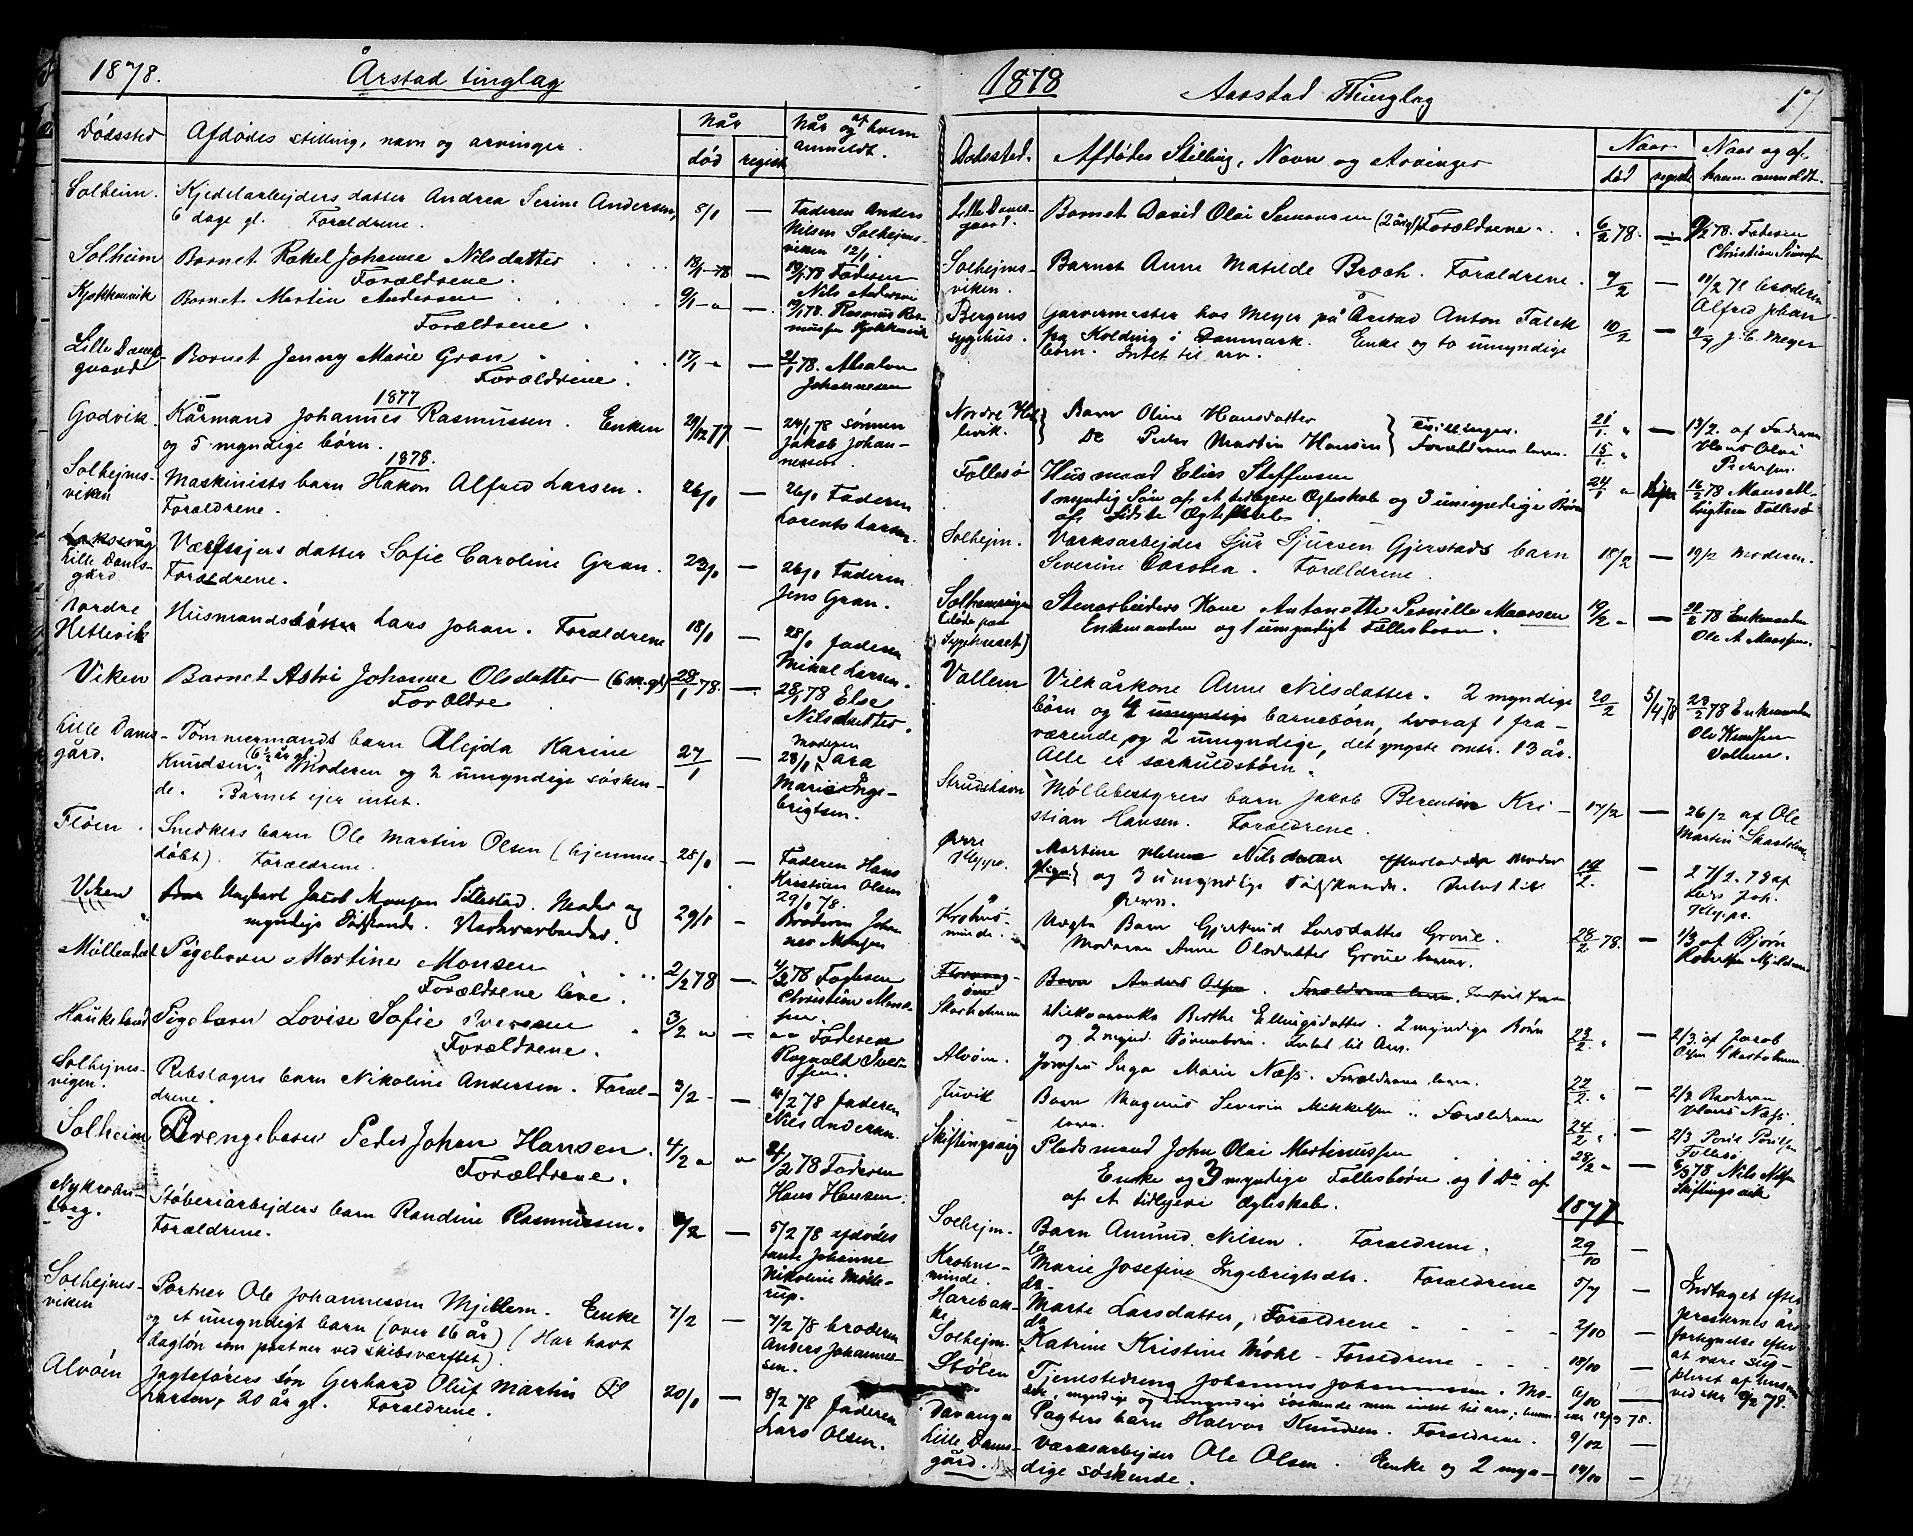 1878. Årstad tinglag
Dødssted Afdødes stilling, navn og arvinger. Når Når og af hvem anmeldt.
død regist.
Solheim. Kjedelarbejders datter Andrea Serine Andersen, 8/1 — Faderen Anders
6 dage gl. Forældrene. Nilsen Solhejms-
viken 12/1.
Solheim Barnet Rakel Johanne Nilsdatter — Faderen
Forældrene. Nils Andersen
Kjøkkenvik Barnet Martin Andersen 9/1 — Rasmus Ras-
Forældrene. mussen Kjøkkenvik
Lille Dams- Barnet Jenny Marie Gran 17/1 — 21/1 78. Absalon
gaard Forældrene. Johannesen
1877
Godvik. Kårmand Johannes Rasmussen. Enken 29/12 77 — 24/1 78 sønnen
og 5 myndige børn. Jakob Johan-
nessen.
1878.
Solhejms- Maskinists barn Hakon Alfred Larsen. 26/1 — 26/1 Faderen
viken Forældrene. Lorents Larsen.
Laksevåg
Lille Dams- datter Sofie Caroline Gran. 23/1 — 26/1 Faderen
gård Forældrene. Jens Gran.
Nordre Husmands Lars Johan. Forældrene 18/1 — 28/1 Faderen
Hetlevik Mikal Larsen.
Viken Barnet Astri Johanne Olsdatter (6 m. gl) 28/1 78. — 28/1 78 Else
Forældre Nilsdatter.
Lille Dams- Tømmermands barn Alejda Karine 27/1 — 28/1 Moderen Sara
gård. Knudsen. (6½ år gl.) Moderen og 2 umyndige søsken- Marie Inge-
de. Barnet ejer intet. brigtsen.
Fløen. Snedkers barn Ole Martin Olsen (hjemme- 28/1 — Faderen Hans
døbt). Forældrene. Kristian Olsen
29/1 78.
Viken Ungkarl Jacob Monsen Moder og 29/1 — Broderen Johan-
myndige Søskende. Værksarbeider. nes Monsen
Møllendal Pigebarn Martine Monsen 2/2 78 — 4/2 78 Faderen
Forældrene leve. Christian Mon-
sen.
Haukeland Pigebarn Lovise Sofie Iversen 3/2 — Faderen
Forældrene. Ragnald Iver-
sen.
Solhejms- Rebslagers barn Nikoline Andersen. Foræl- 3/2 — 4/2 78 Faderen
vigen. drene. Nils Andersen.
Solheim Drengebarn Peder Johan Hansen. 4/2 4/2 78 Faderen
Forældrene. Hans Hansen.
Nykrohn- Støberiarbejders barn Randine Rasmussen. /2 — 5/2 78 afdødes
borg. Forældrene. tante Johanne
Nikoline Mølle-
rup.
Solhejms- Portner Ole Johannessen Mjellem. Enke 7/2 — 7/2 78 broderen
viken og et umyndigt barn (over 16 år) (Har havt Anders Johannes-
dagløn som portner ved skibsværftet). sen.
Alvøen Jagteførers søn Gerhard Oluf Martin 20/1 — 8/2 78 Faderen
Larsen, 20 år gl. Forældrene. Lars Olsen.
1878 Aarstad Thinglag 17
Dødssted. Afdødes Stilling, Navn og Arvinger Naar Naar og af
død regist hvem anmeldt.
Lille Dams- Barnet David Olai Simonsen (2 år gl) Forældrene. 6/2 78. — 9/2 78. Faderen
gaard Christian Simonsen
Solhejms- Barnet Anne Matilde Broch. Forældrene. 7/2 — 11/2 78 broderen
viken. Alfred Johan
Bergens Garvermester hos Meyer på Årstad Anton Falck 10/2 — J. C. Meyer
sygehus. fra Kolding i Danmark. Enke og to umyndige
børn. Intet til arv.
Nordre Het- Barn Oline Hansdatter Tvillinger. 21/1. — 13/2. af Faderen
levik. Do Peder Martin Hansen Forældrene leve. 15/1. Hans Olai
Pedersen.
Follesø Husmand Elias Steffensen 24/1 16/2 78 Mons
1 myndig Søn af et tidligere Ægteskab og 3 umyndige Børn Follesø
af sidste Ægteskab
Solhejm. Værksarbejder Sjur Sjursen Gjerstads barn 18/2 — 19/2 Moderen.
Severine Dorotea. Forældrene.
Solheimsvigen Stenarbeiders Kone Antonette Pernille Maarsen 19/2 — 20/2 78 Enkemanden
(døde paa Enkemanden og 1 umyndigt Fællesbarn. Ole A. Maarsen.
Sygehuset)
Vallem Vilkårkone Anne Nilsdatter. 2 myndige 20/2 5/4 78 23/2 78 Enkemanden
børn og 4 umyndige barnebørn, hvoraf 1 fra- Ole Knudsen
værende, og 2 umyndige, det yngste omtr. 13 år. Vallem.
Alle er særkuldsbørn.
Strudshavn Møllebestyrers barn Jakob Berentin Kri- 17/2 — 26/2 af Ole
stian Hansen. Forældrene. Martin Skarholmen
Kleppe. Martine Helene Nilsdatter efterlader Moder 14/2. — 27/2. 78 af
Pige og 3 umyndige Søskende. Intet til Lars Joh.
Arv. Kleppe.
Krohns- Uægte Barn Gjertrud Larsdatter Groue. 28/2 78. — 1/3 af Bjørn
minde. Moderen Anne Olsdatter Groue lever.
Barn Anders Olsen. Forældrene leve.
Skarholmen Berthe Ellingsdatter. 2 myndige Børn 23/2. — 2/3 af Jacob
og 2 mynd. Sønnebørn. Intet til Arv. Olsen Skarholmen
Alvøen. Jomfru Inga Marie Næss. Forældrene leve. 22/2. — 2/3 Broderen
Hans Næss.
Juvik Barn Magnus Severin Mikkelsen Forældrene 24/2 — 2/3 Povel Povelsen
leve. Follesø
Skiftingsvig Pladsmand John Olai Martinussen 28/2 — 6/3 78 Nils Nilsen
Enke og 3 myndige Fællesbørn og 1 Do af Skiftingsvik
af et tidligere Ægteskab.
1877
Solhejm. Barn Amund Nilsen. Forældrene. 29/10 —
Krohns- do Marie Josefine Ingebrigtsdtr. Forældrene 5/7 — Indtaget efter
minde. præsternes års-
Haribak- do Marte Larsdatter, Forældrene 2/10 — fortegnelse efter
ke at være
Solhejm do Katrine Kristine Mohl - Forældrene 18/10 —
Stølen Tjenestedreng Johannes Johannessen. Mo- 6/10
der, myndige og umyndige søskende men intet til arv; 12/3 78. ved skr 9/2 78.
Davanger Pagters barn Halvor Knudsen. Forældrene. 9/12 —
Lille Dams- Værksarbejder Ole Olsen. Enke og 2 myn- 14/10 —
gård. dige søskende.